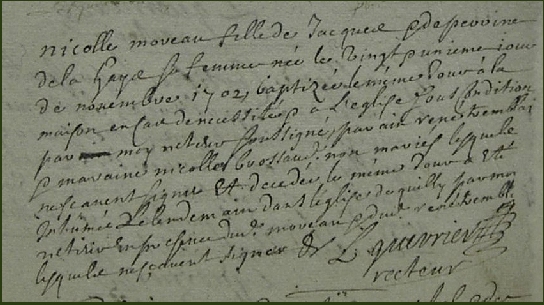 nicolle moreau fille de Jacques & de perrine
de la haye sa femme née le vingt unieme jour
de novembre 1702, baptizée le même jour a la
maison en cas de necessité & a L'eglise sous condition
par moy recteur soussigné, parain rené
& maraine nicolle brossaud non maries lesquels
ne scavent signer Et decedee le même jour & Eté
Inhumee Le lendemain dans l'eglise de quilly par moy
recteur En presence du moreau & du rené
lesquels ne scavent signer
L guerrier
recteur